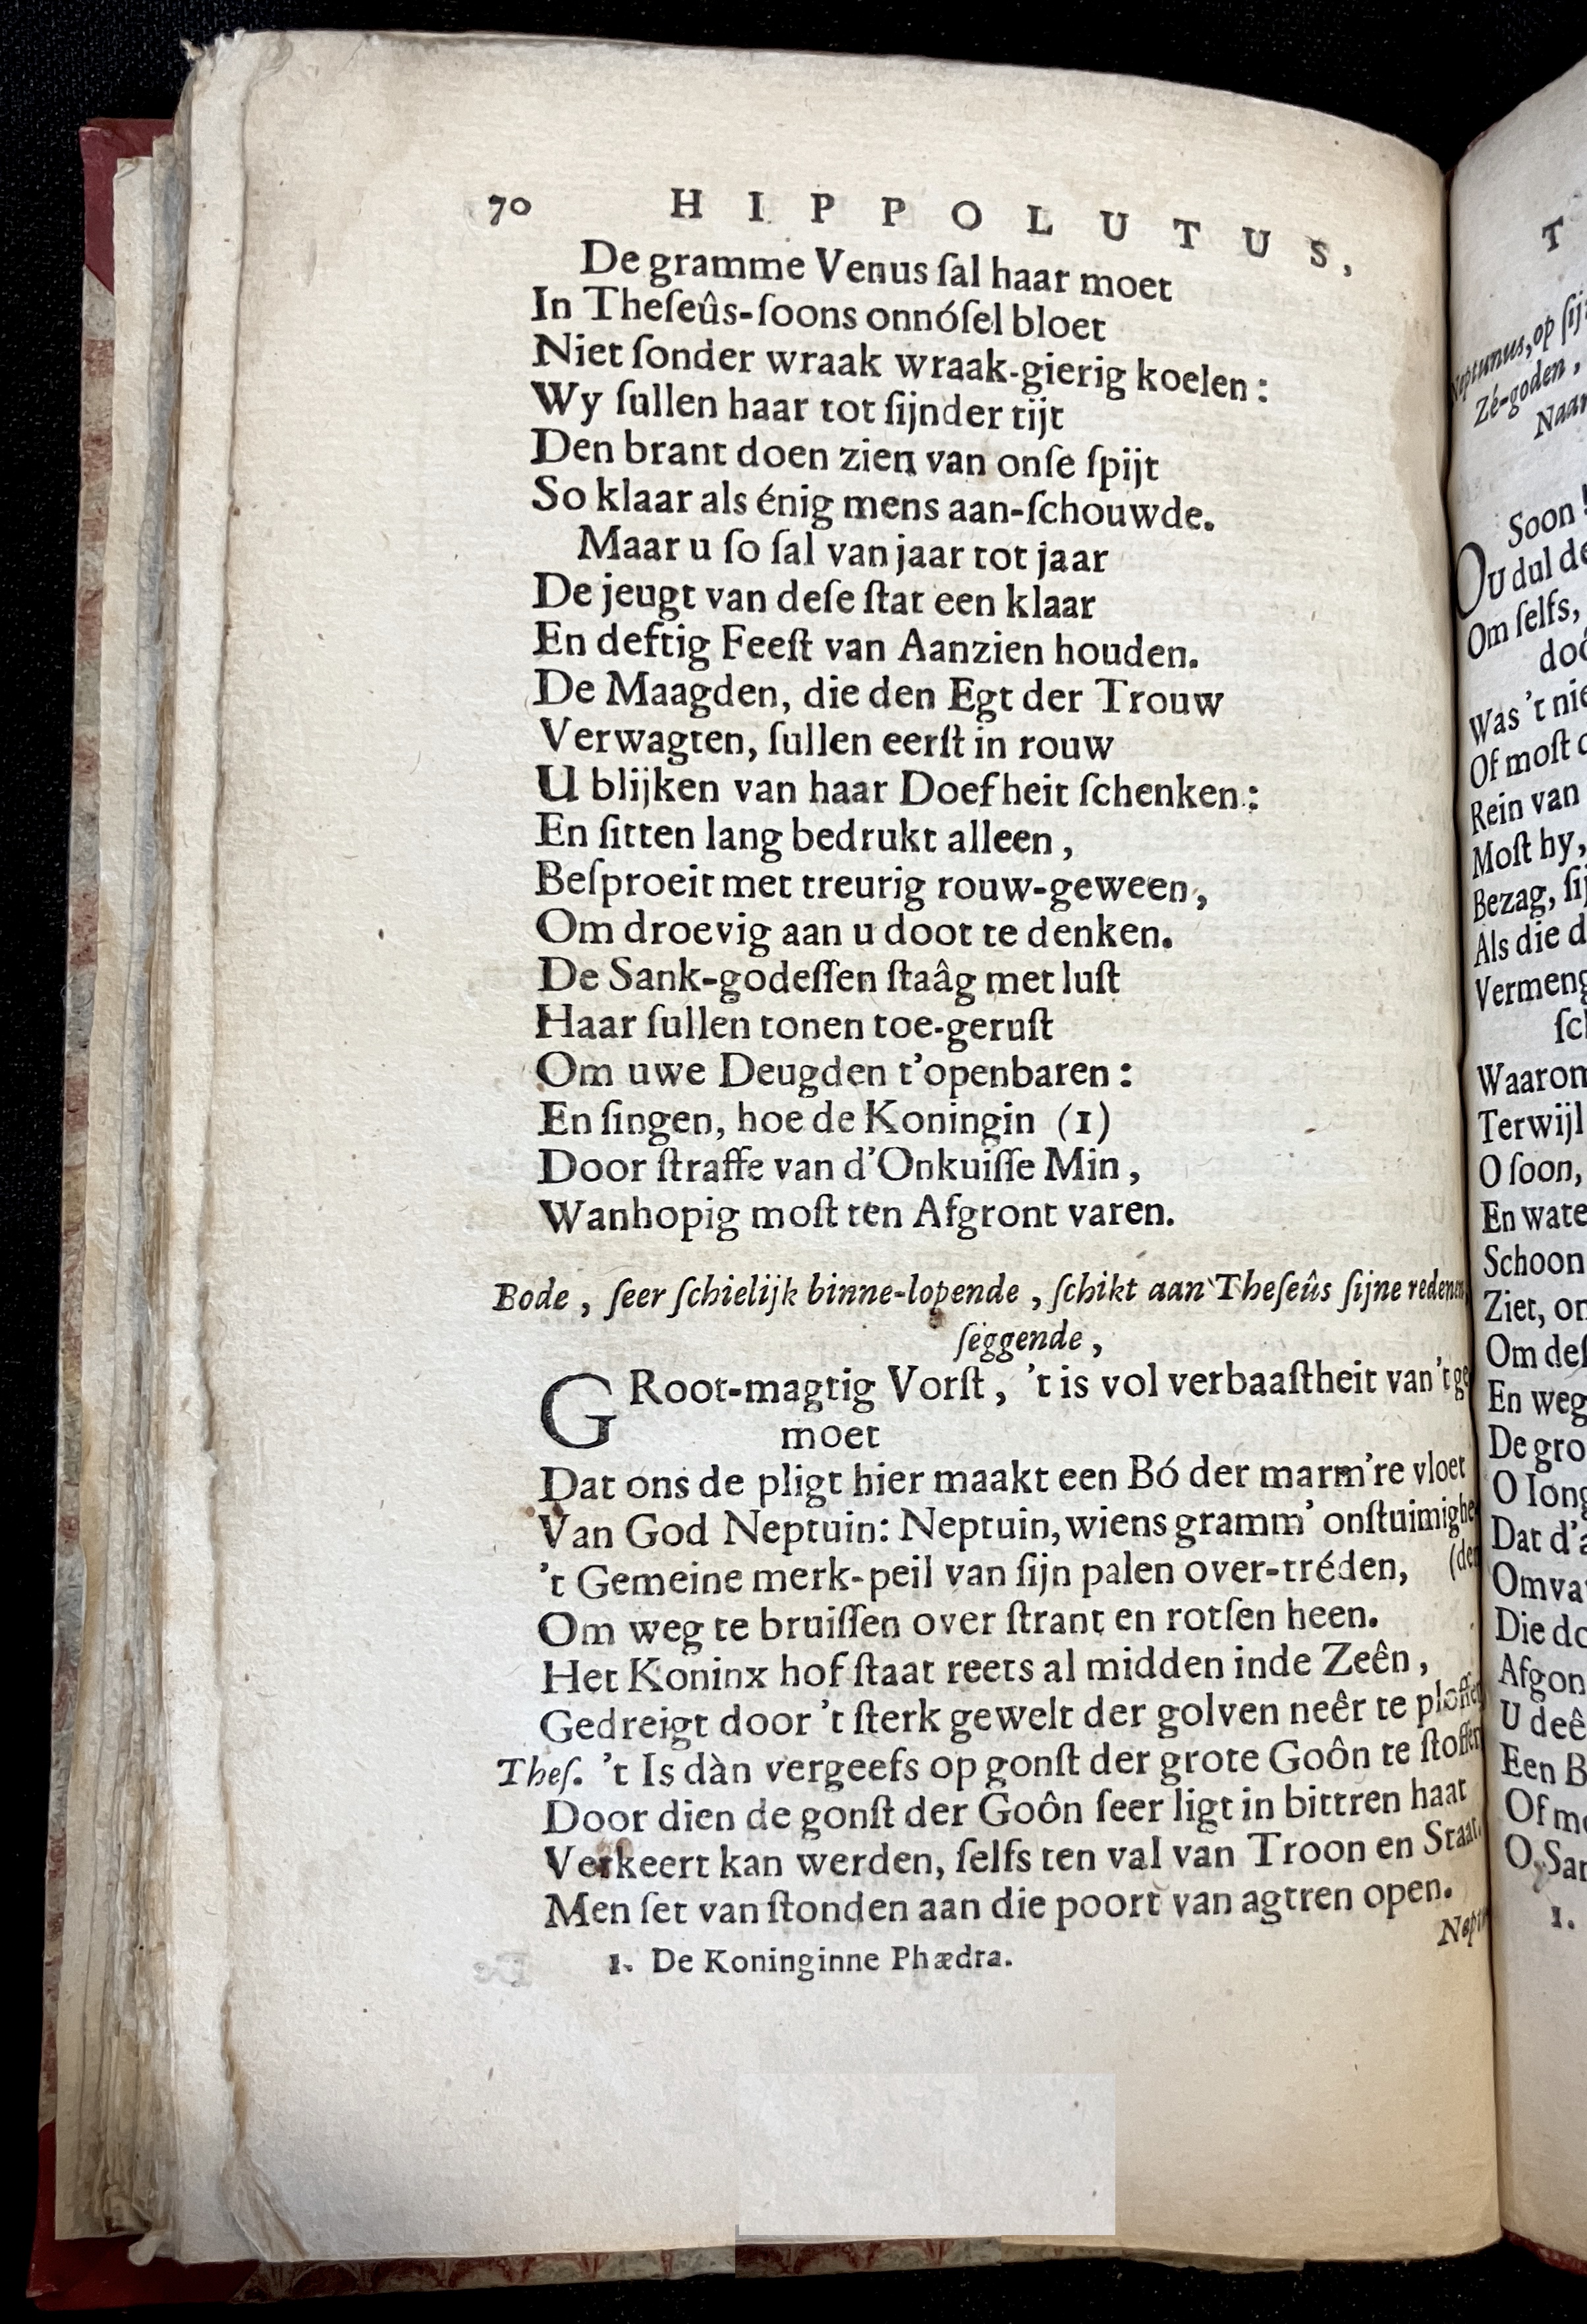 70 HIPPOLUTUS,
De gramme Venus ſal haar moet
In Theſeûs-ſoons onnóſel bloet
Niet ſonder wraak wraak-gierig koelen:
Wy ſullen haar tot ſijnder tijt
Den brant doen zien van onſe ſpijt
So klaar als énig mens aan-ſchouwde.
Maar u ſo ſal van jaar tot jaar
De jeugt van deſe ſtat een klaar
En deftig Feeſt van Aanzien houden.
De Maagden, die den Egt der Trouw
Verwagten, ſullen eerſt in rouw
U blijken van haar Doefheit ſchenken:
En ſitten lang bedrukt alleen,
Beſproeit met treurig rouw-geween,
Om droevig aan u doot te denken.
De Sank-godeſſen ſtaâg met luſt
Haar ſullen tonen toe-geruſt
Om uwe Deugden t'openbaren:
En ſingen, hoe de Koningin (1)
Door ſtraffe van d'Onkuiſſe Min,
Wanhopig moſt ten Afgront varen.
Bode, ſeer ſchielijk binne-lopende, ſchikt aan Theſeûs ſijne
ſeggende,
GRoot-magtig Vorſt, 't is vol verbaaſtheit van 't
moet
Dat ons de pligt hier maakt een Bó der marm're vloet
Van God Neptuin: Neptuin, wiens gramm'
't Gemeine merk-peil van ſijn palen over-tréden,
Om weg te bruiſſen over ſtrant en rotſen heen.
Het Koninx hof ſtaat reets al midden inde Zeên,
Gedreigt door 't ſterk gewelt der golven neêr te
Theſ. 't Is dàn vergeefs op gonſt der grote Goôn te
Door dien de gonſt der Goôn ſeer ligt in bittren haat
Verkeert kan werden, ſelfs ten val van Troon en
Men ſet van ſtonden aan die poort van agtren open.
1. De Koninginne Phædra.
T
op
Zé-goden,
Soon!
OU dul
Om ſelfs,
Was 't
Of moſt
Rein van
Moſt hy,
Bezag,
Als die
Terwijl
O ſoon,
Schoon
Ziet,
Om
En weg
Dat
Een
1.